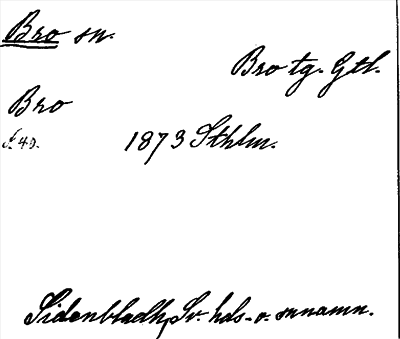 Bro sn.
Bro tg. Gtl.
Bro
s. 40.
1873 Sthlm.
Sidenbladh, Sv. hds- o. snnamn.